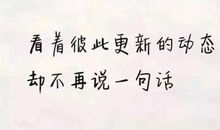 看着彼此更新的动态
却不再说一句话